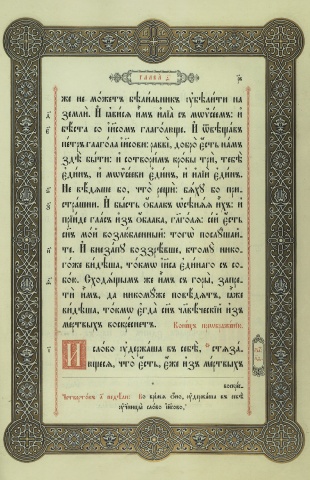 ГЛАВА
же не можетъ бѣлильникъ ѹбѣлити на
земли. И҆ ꙗ҆ви́сѧ и҆̀мъ и҆лїа̀ съ мѡѷсе́емъ: и҆
бѣста со і҆исомъ глаго́люще. И҆ ѿвѣща́въ
пе́тръ глаго́ла і҆и҃сови: равві̀, добро̀ є҆́сть на́мъ
здѣ̀ бы́ти: и҆ сотвори́мъ кро́вы трѝ, тебѣ̀
є҆ди́нъ, и҆ мѡѷсе́ови є҆ди́нъ, и҆ и҆лїѝ є҆ди́нъ.
Не вѣ́дѧше бо, что̀ рещѝ: бѧ́хꙋ бо при-
стра́шни. И҆ бы́сть ѡ҆́блакъ ѡ҆сѣнѧ́ѧ и҆̀хъ: и҆
прїи́де гла́съ и҆з̾ ѡ҆́блака, гл҃го́лѧ: се́й є҆́сть
сн҃ъ мо́й возлю́бленный: тогѡ̀ послꙋ́шай-
те. И҆ внеза́пꙋ воззрѣ́вше, ктомꙋ̀ нико-
го́же ви́дѣша, то́кмѡ і҆и҃са є҆ди́наго съ со-
бо́ю. Сходѧ́щымъ же и҆̀мъ съ горы̀, запре-
тѝ и҆̀мъ, да никомꙋ́же повѣ́дѧтъ, ꙗ҆̀же
ви́дѣша, то́кмѡ є҆гда̀ сн҃ъ чл҃вѣ́ческїй и҆з̾
ме́ртвыхъ воскре́снетъ. Коне́цъ преѡбраже́нїю.
И҆ сло́во ѹ҆держа́ша въ себѣ̀, стѧза́-
ющесѧ, что̀ є҆́сть, є҆́же и҆з̾ ме́ртвыхъ
воскре-
Во вре́мѧ ѻ҆́но, ѹ҆держа́ша въ себѣ̀
ѹ҆ченицы̀ сло́во і҆и҃сово,